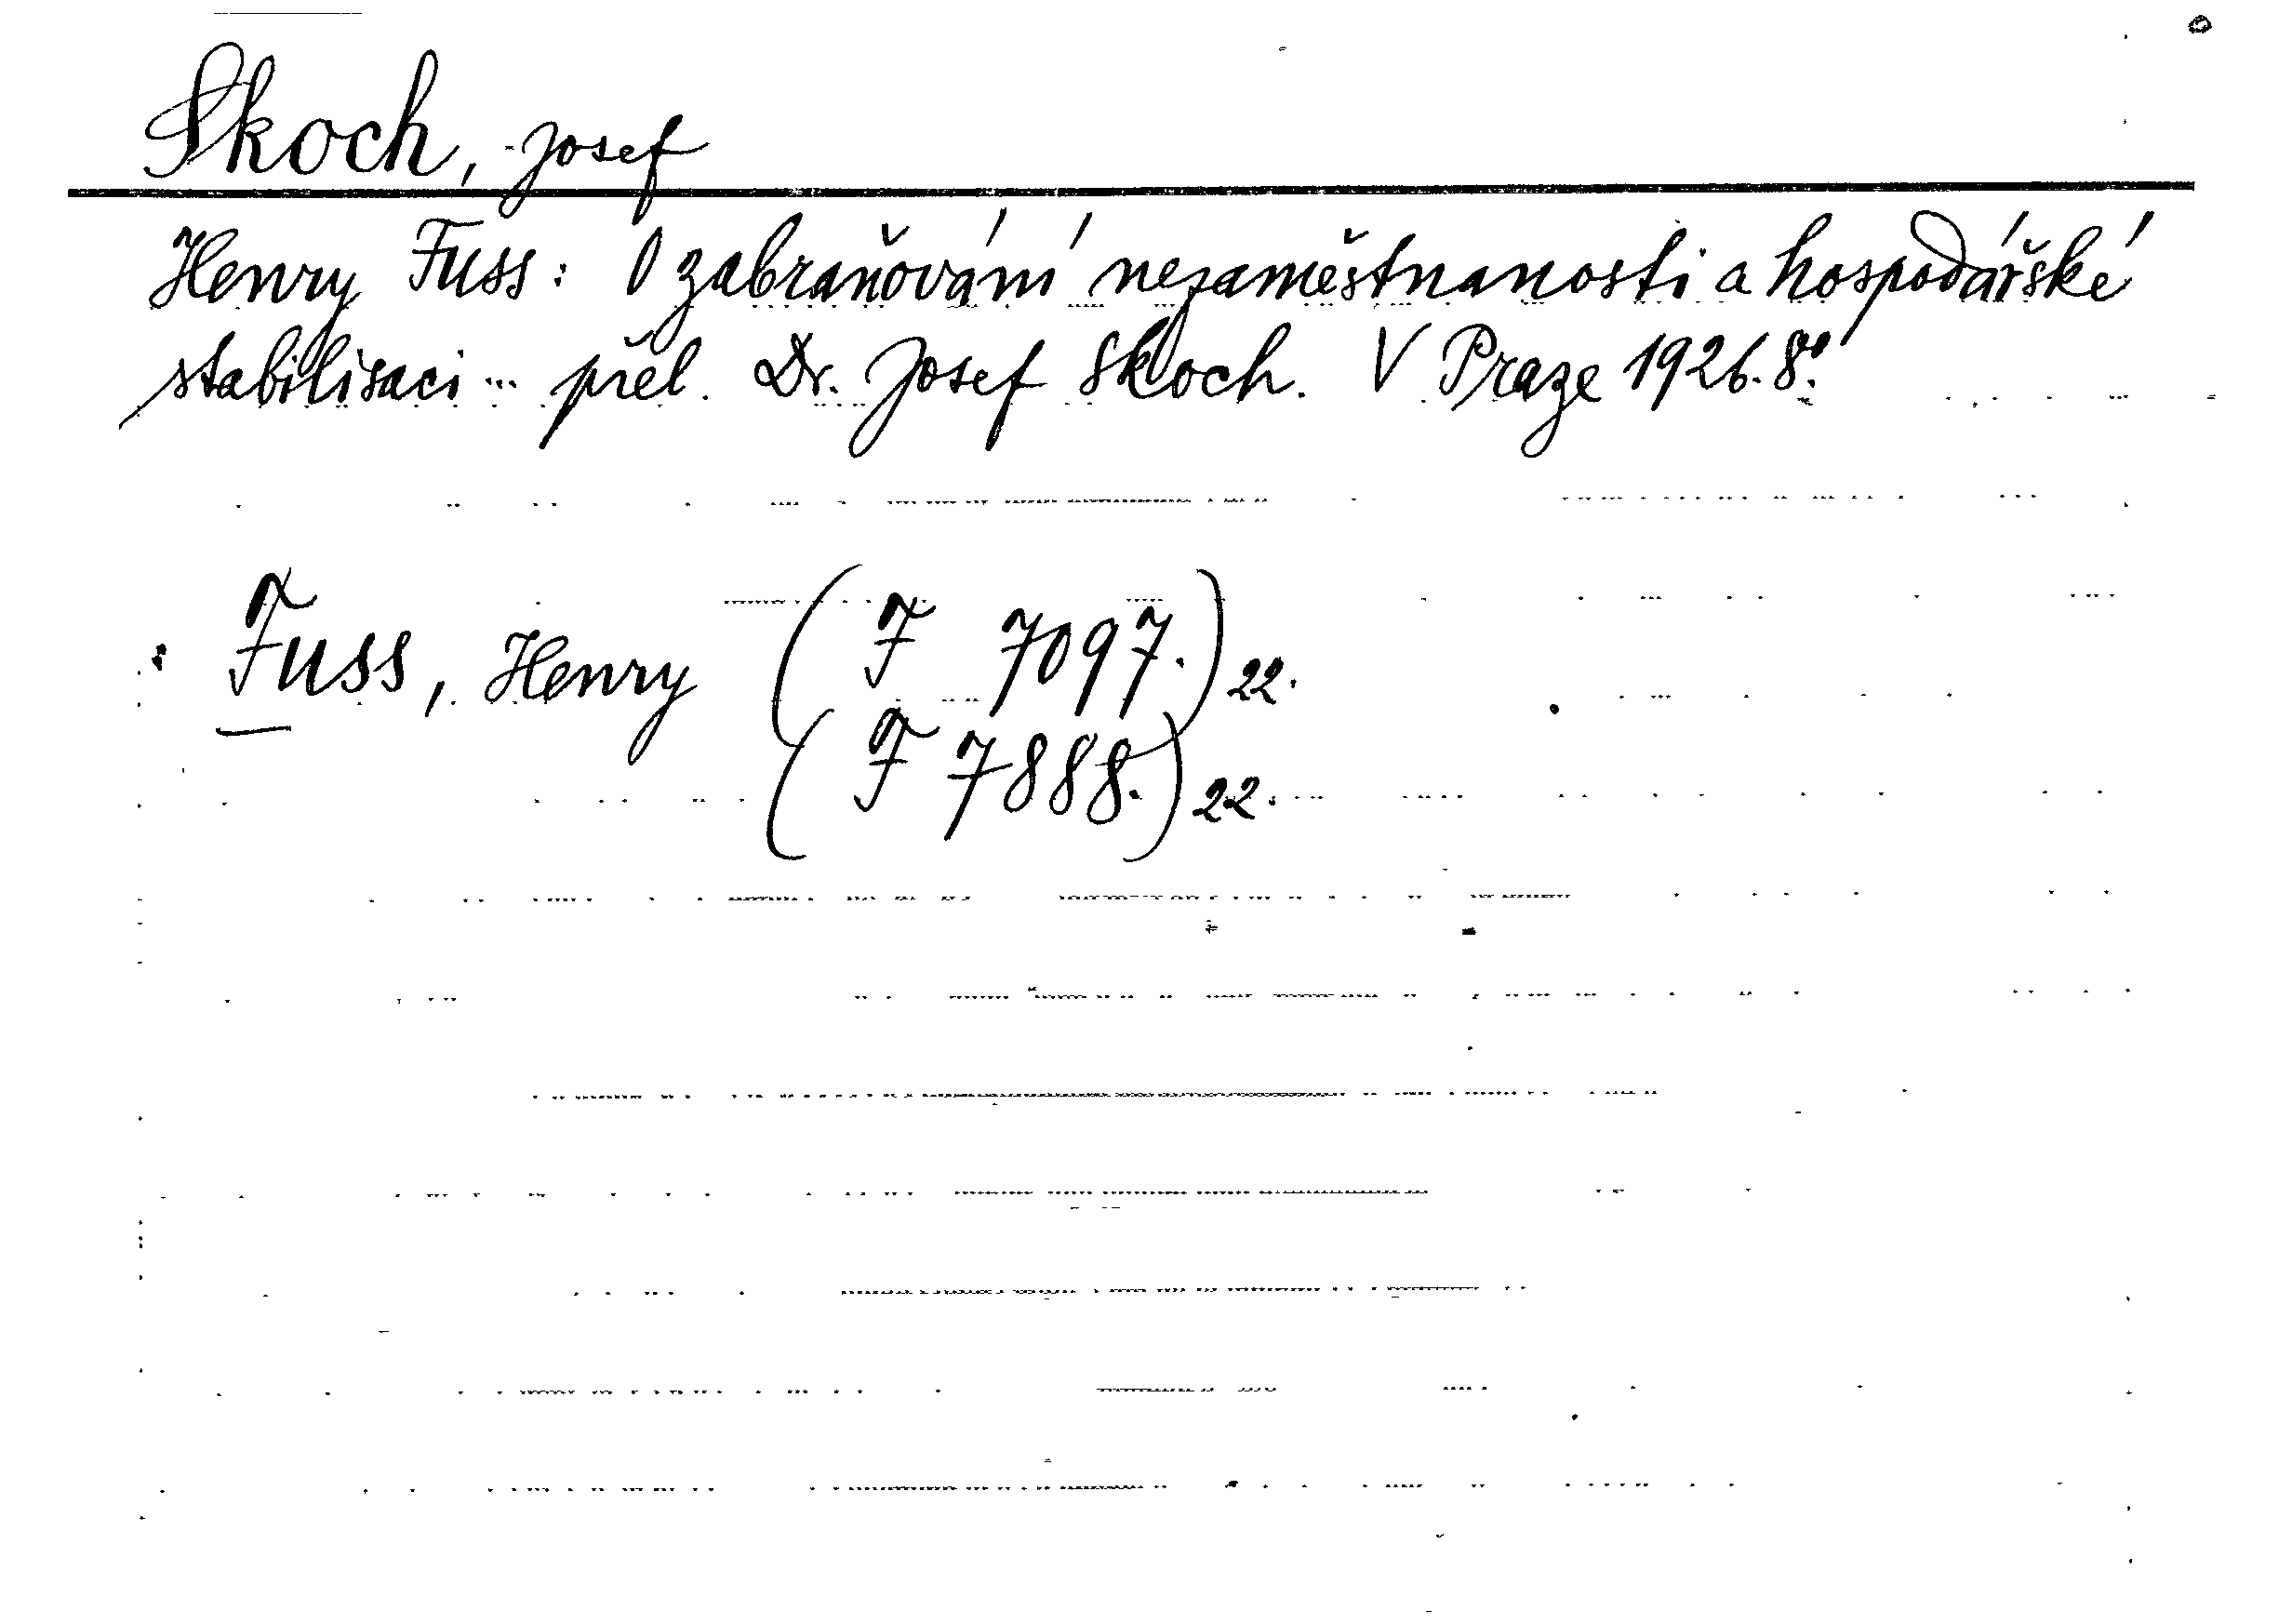 Skoch, Josef
Henry Fuss: O zabraňování nezaměstnanosti a hospodářské
stabilisaci ... přel. Dr. Josef Skoch. V Praze 1926. 8º.
: Fuss, Henry (F 7097.) 22.
(F 7888.) 22.